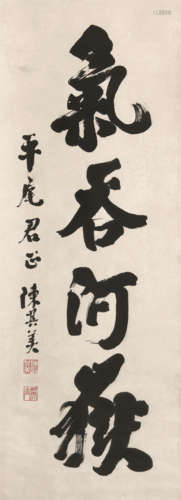 氣吞河嶽
平尾君正
陳其美